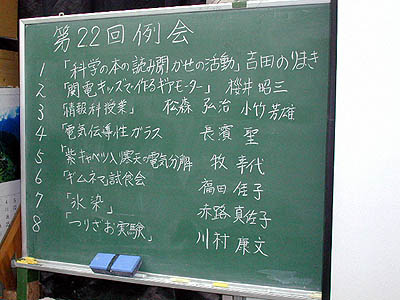 第22回例会
1 「科学の本の読み聞かせの活動」 吉田のりまき
2 「関電キッズで作るギアモーター」 桜井昭三
3 「情報科授業」 松森弘治 小竹芳雄
4 「電気伝導性ガラス 長濱 聖
5 「紫キャベツ入り寒天の電気分解 牧 幸代
6 「ギムネマ試食会 福田佳子
7 「氷染」 赤路真佐子
8 「つりざお実験」 川村康文